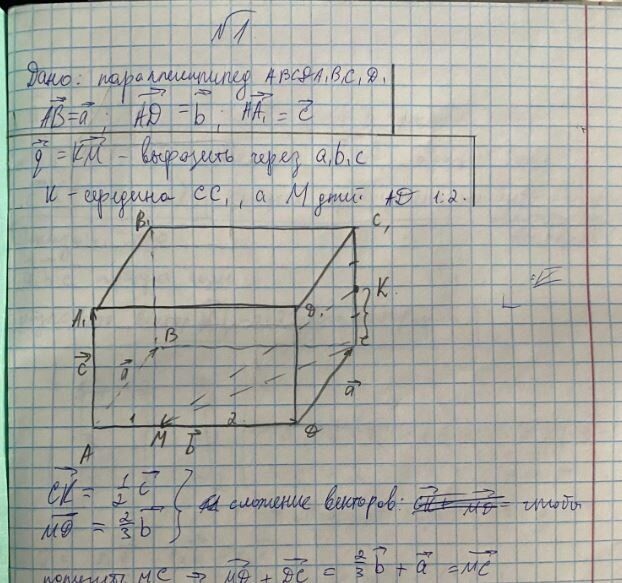 №1.
Дано: параллепипед ABCDA₁B₁C₁D₁
AB⃗=a⃗; AD⃗=b⃗; AA₁⃗=c⃗
q⃗=KM⃗ – выразить через a, b, c
K – середина CC₁, а M делит AD 1:2.
B₁ C₁
K
A₁ D₁
B C
c⃗ a⃗ a⃗
1 2
A M b⃗ D
CK⃗ = 1/2 c⃗
MD⃗ = 2/3 b⃗ } сложение векторов: чтобы
получить MC → MD⃗ + DC⃗ = 2/3 b⃗ + a⃗ = MC⃗